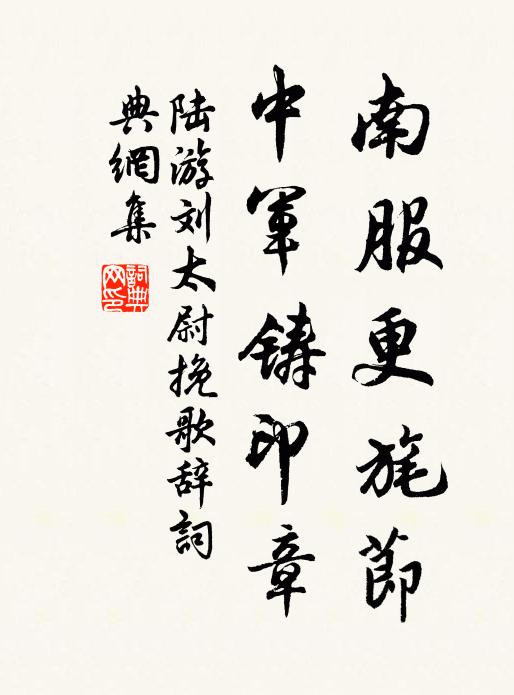 南服更旄節
中軍铸印章
陆游刘太尉挽歌辞詞
典網集
詞典
网印